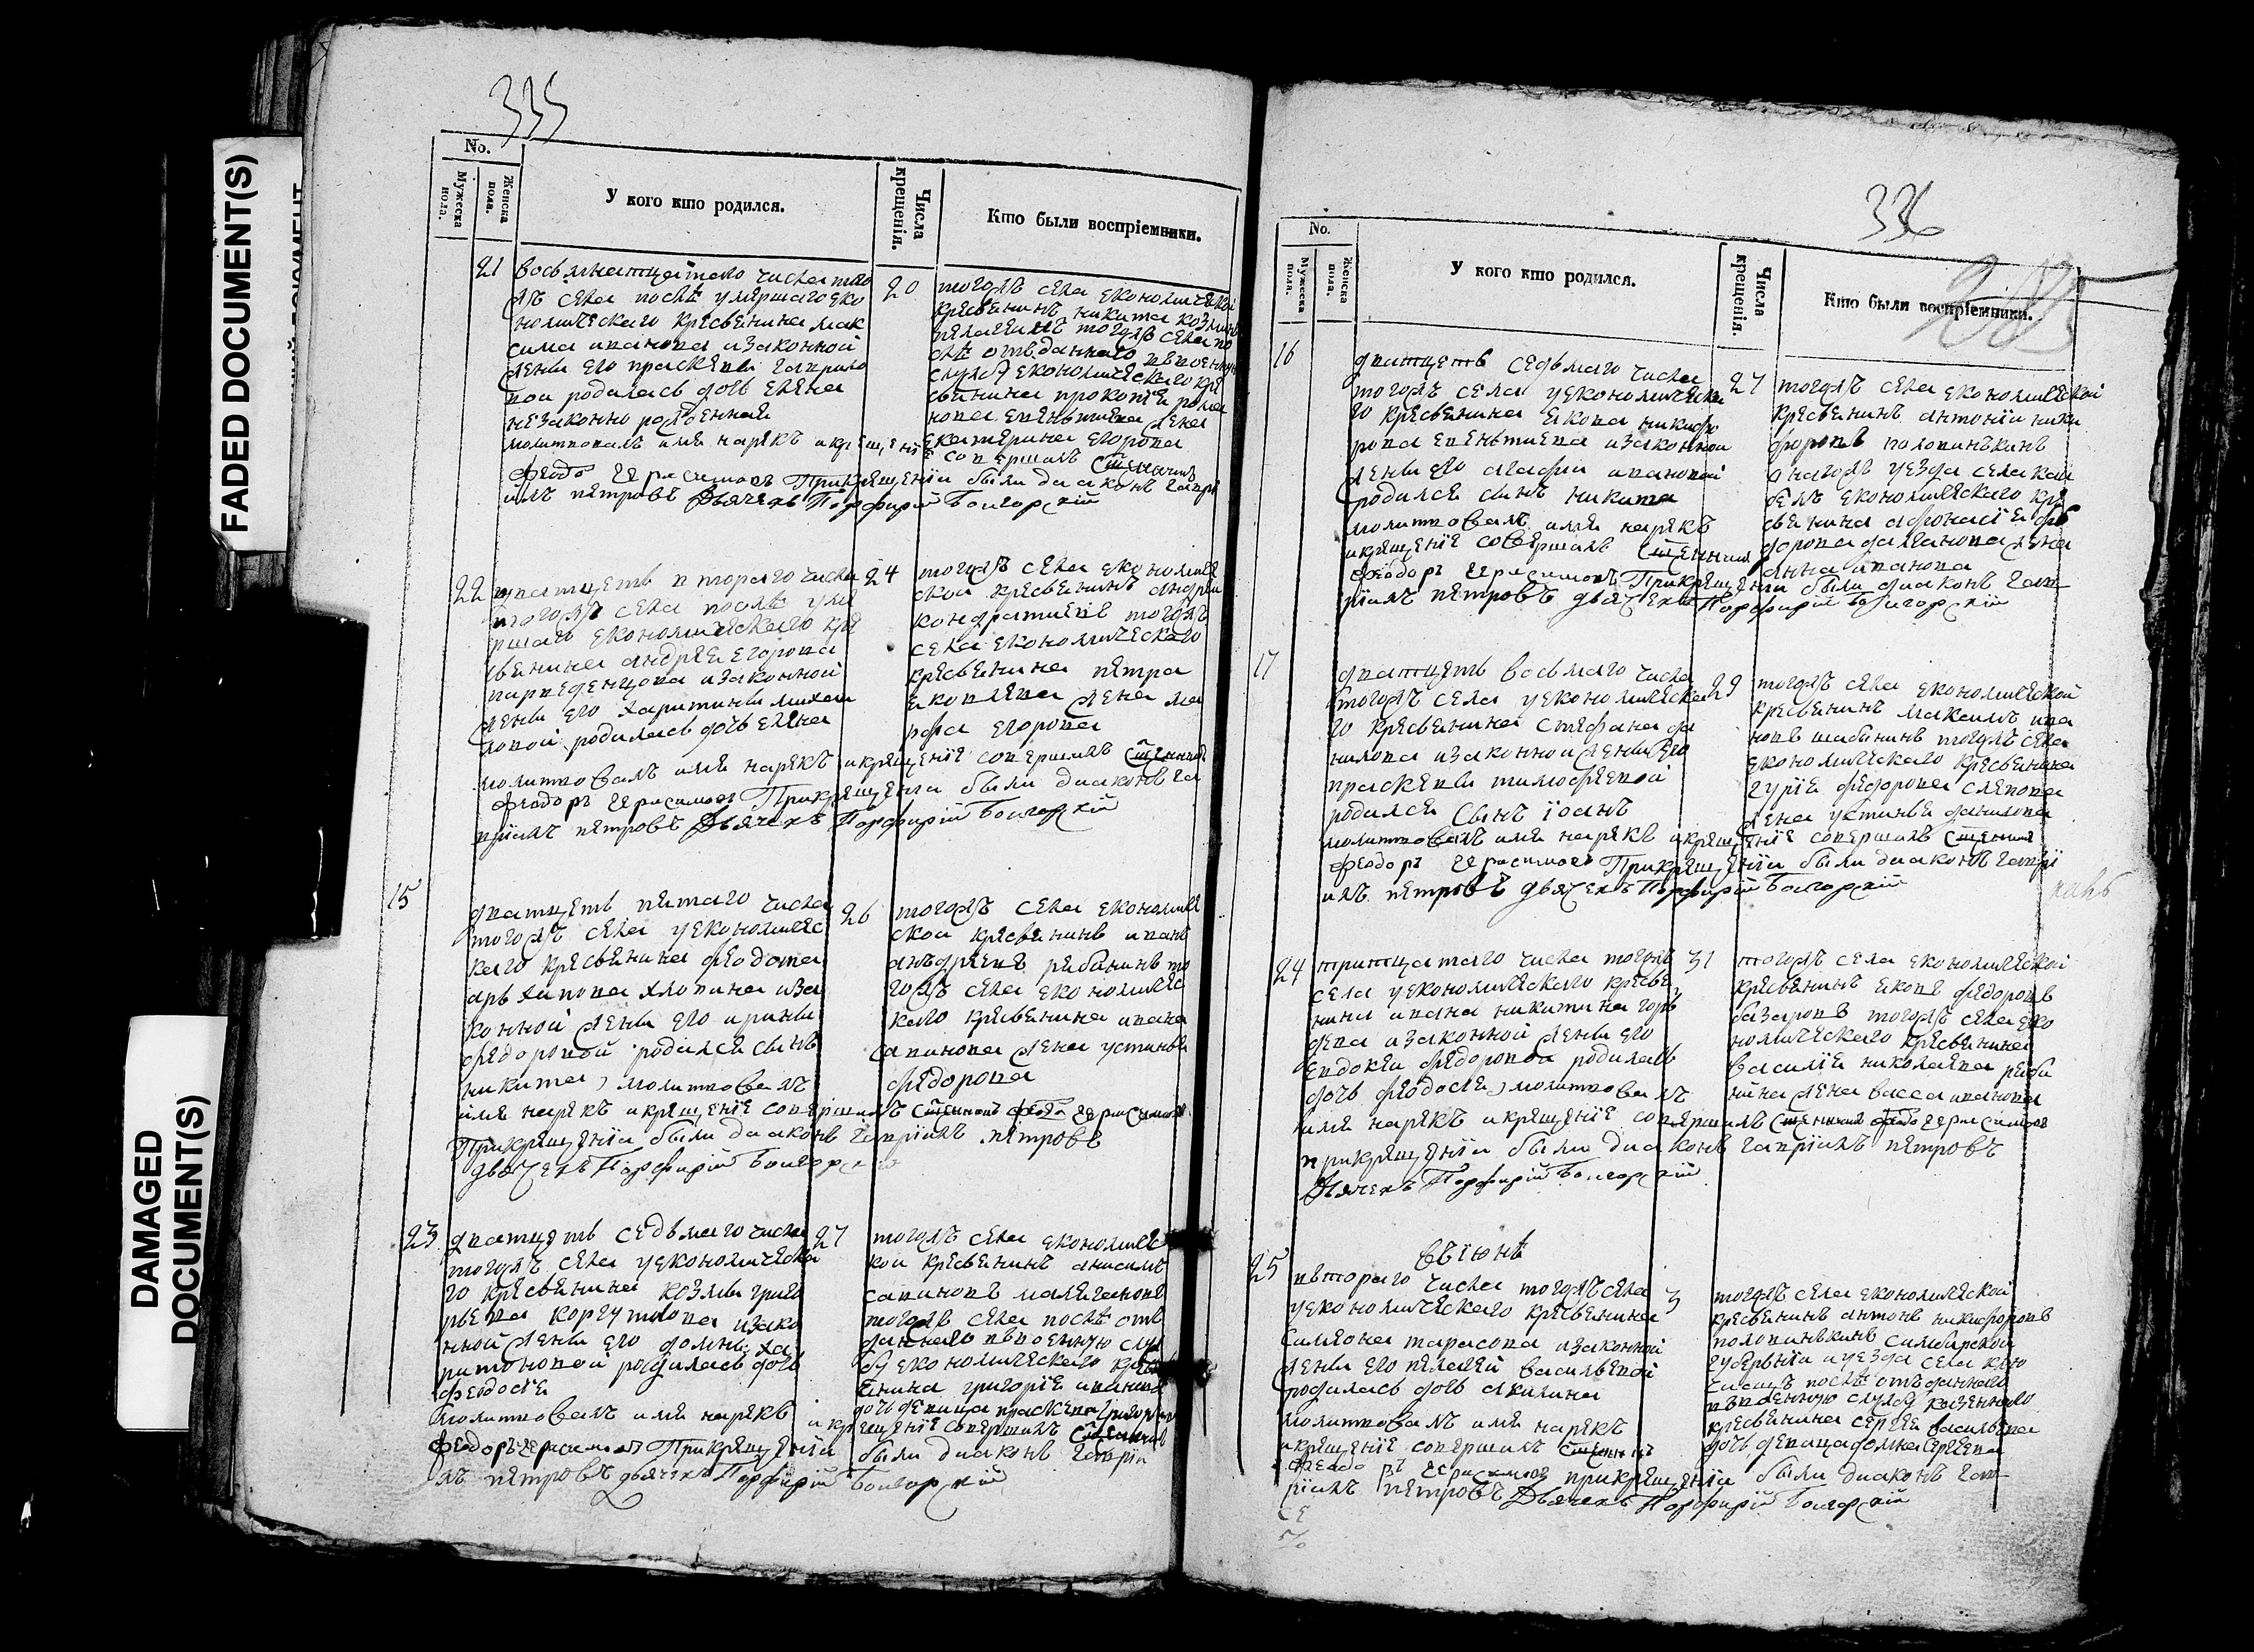 FADED DOCUMENT(S)
DAMAGED
DOCUMENT(S)
335
No.
Мужеска пола.
Женска пола.
У кого кто родился.
Числа крещенія.
Кто были воспріемники.
21
восьмнатцатаго числа того
жъ села послѣ умершаго еко
номическаго кресьянина мак
сима иванова изаконной
жены его праскевы гаврило
вой родилась дочь елена
незаконно рожденная
молитвовалъ имя нарекъ икрещеніе совершалъ
Феодоръ Герасимовъ Прикрещеніи были диаконъ Гавріи
илъ петровъ Дьячекъ Порфирій Богорскій
20
тогожъ села економической
кресьянинъ никита козминъ
тогожъ села по
слѣ отъданнаго ввоенную
службу економическаго кре
сьянина прокопіе рома
нова жена
екатерина егорова
22
дватцеть втораго числа
тогожъ села послѣ уме
ршаго економическаго кре
сьянина андрея егорова
изаконной
жены его харитины михаи
ловой родилась дочь елена
молитвовалъ имя нарекъ икрещеніе совершалъ
Феодоръ Герасимовъ Прикрещеніи были диаконъ Га
вріилъ петровъ Дьячекъ Порфирій Богорскій
24
тогожъ села економиче
ской кресьянинъ андреи
кондратиевъ тогожъ
села економическаго
кресьянина петра
яковлева жена ма
рфа егорова
15
дватцеть пятаго числа
тогожъ села уекономичес
каго кресьянина феодота
архипова хлопина иза
конной жены его ирины
федоровой родился сынъ
никита, молитвовалъ
имя нарекъ икрещеніе совершалъ Герасимовъ
Прикрещеніи были диаконъ Гавріилъ петровъ
дьячекъ Порфирій Богорскій
26
тогожъ села економиче
ской кресьянинъ иванъ
анъдреевъ рябининъ то
гожъ села економичес
каго кресьянина ивана
савинова жена устинья
федорова
23
дватцеть седьмаго числа
тогожъ села уекономическа
го кресьянина козмы григо
рьева изако
нной жены его домны ха
ритоновой родилась дочь
феодосіе
молитвовалъ имя нарекъ икрещеніе совершалъ
Феодоръ Герасимовъ Прикрещеніи были диаконъ Гавріи
лъ петровъ дьячекъ Порфирій Богорскій
27
тогожъ села економичес
кой кресьянинъ анисимъ
савиновъ
тогожъ села послѣ отъ
даннаго ввоенную слу
жбу економическаго кресь
янина григоріе иванова
дочь девица праскева григорьева
336
No.
Мужеска пола.
Женска пола.
У кого кто родился.
Числа крещенія.
Кто были воспріемники.
16
дватцеть седьмаго числа
тогожъ села уекономическа
го кресьянина якова никифо
рова изаконной
жены его агафіи ивановой
родился сынъ никита
молитвовалъ имя нарекъ
икрещеніе совершалъ
Феодоръ Герасимовъ Прикрещеніи были диаконъ Гав
ріилъ петровъ дьячекъ Порфирій Богорскій
27
тогожъ села економической
кресьянинъ антоніи ники
форовъ половинъкинъ
онагожъ уезда села
економическаго кре
сьянина афонасіе фе
дорова жена
анна иванова
17
дватцеть восьмаго числа
тогожъ села уекономическа
го кресьянина стефана да
нилова изаконной жены его
праскевы тимофеевой
родился сынъ іоанъ
молитвовалъ имя нарекъ икрещеніе совершалъ
Феодоръ Герасимовъ Прикрещеніи были диаконъ Гаврі
илъ петровъ дьячекъ Порфирій Богорскій
29
тогожъ села економической
кресьянинъ максимъ ива
новъ шабынинъ тогожъ села
економическаго кресьянина
гуріе федорова слепова
жена устинья данилова
24
тритцатаго числа тогожъ
села уекономическаго кресья
нина ивана никитина горъ
деева изаконной жены его
евдокеи федоровой родилась
дочь феодосіе, молитвовалъ
имя нарекъ икрещеніе совершалъ Герасимовъ
прикрещеніи были диаконъ гавріилъ петровъ
Дьячекъ Порфирій Богорскій
31
тогожъ села економической
кресьянинъ яковъ федоровъ
базаровъ тогожъ села еко
номическаго кресьянина
василіе николаева ряби
нина жена васса иванова
Въіюнѣ
25
втораго числа тогожъ села
уекономическаго кресьянина
симеона тарасова изаконной
жены его пелагеи васильевой
родилась дочь акилина
молитвовалъ имя нарекъ
икрещеніе совершалъ
Феодоръ Герасимовъ прикрещеніи были диаконъ Гав
ріилъ петровъ Дьячекъ Порфирій Богорскій
3
тогожъ села економической
кресьянинъ антонъ никифоровъ
половинъкинъ симбирской
губерьніи иуезда села клю
чищъ послѣ отъданнаго
ввоенную службу казеннаго
кресьянина сергея васильева
дочь девица домна сергеева